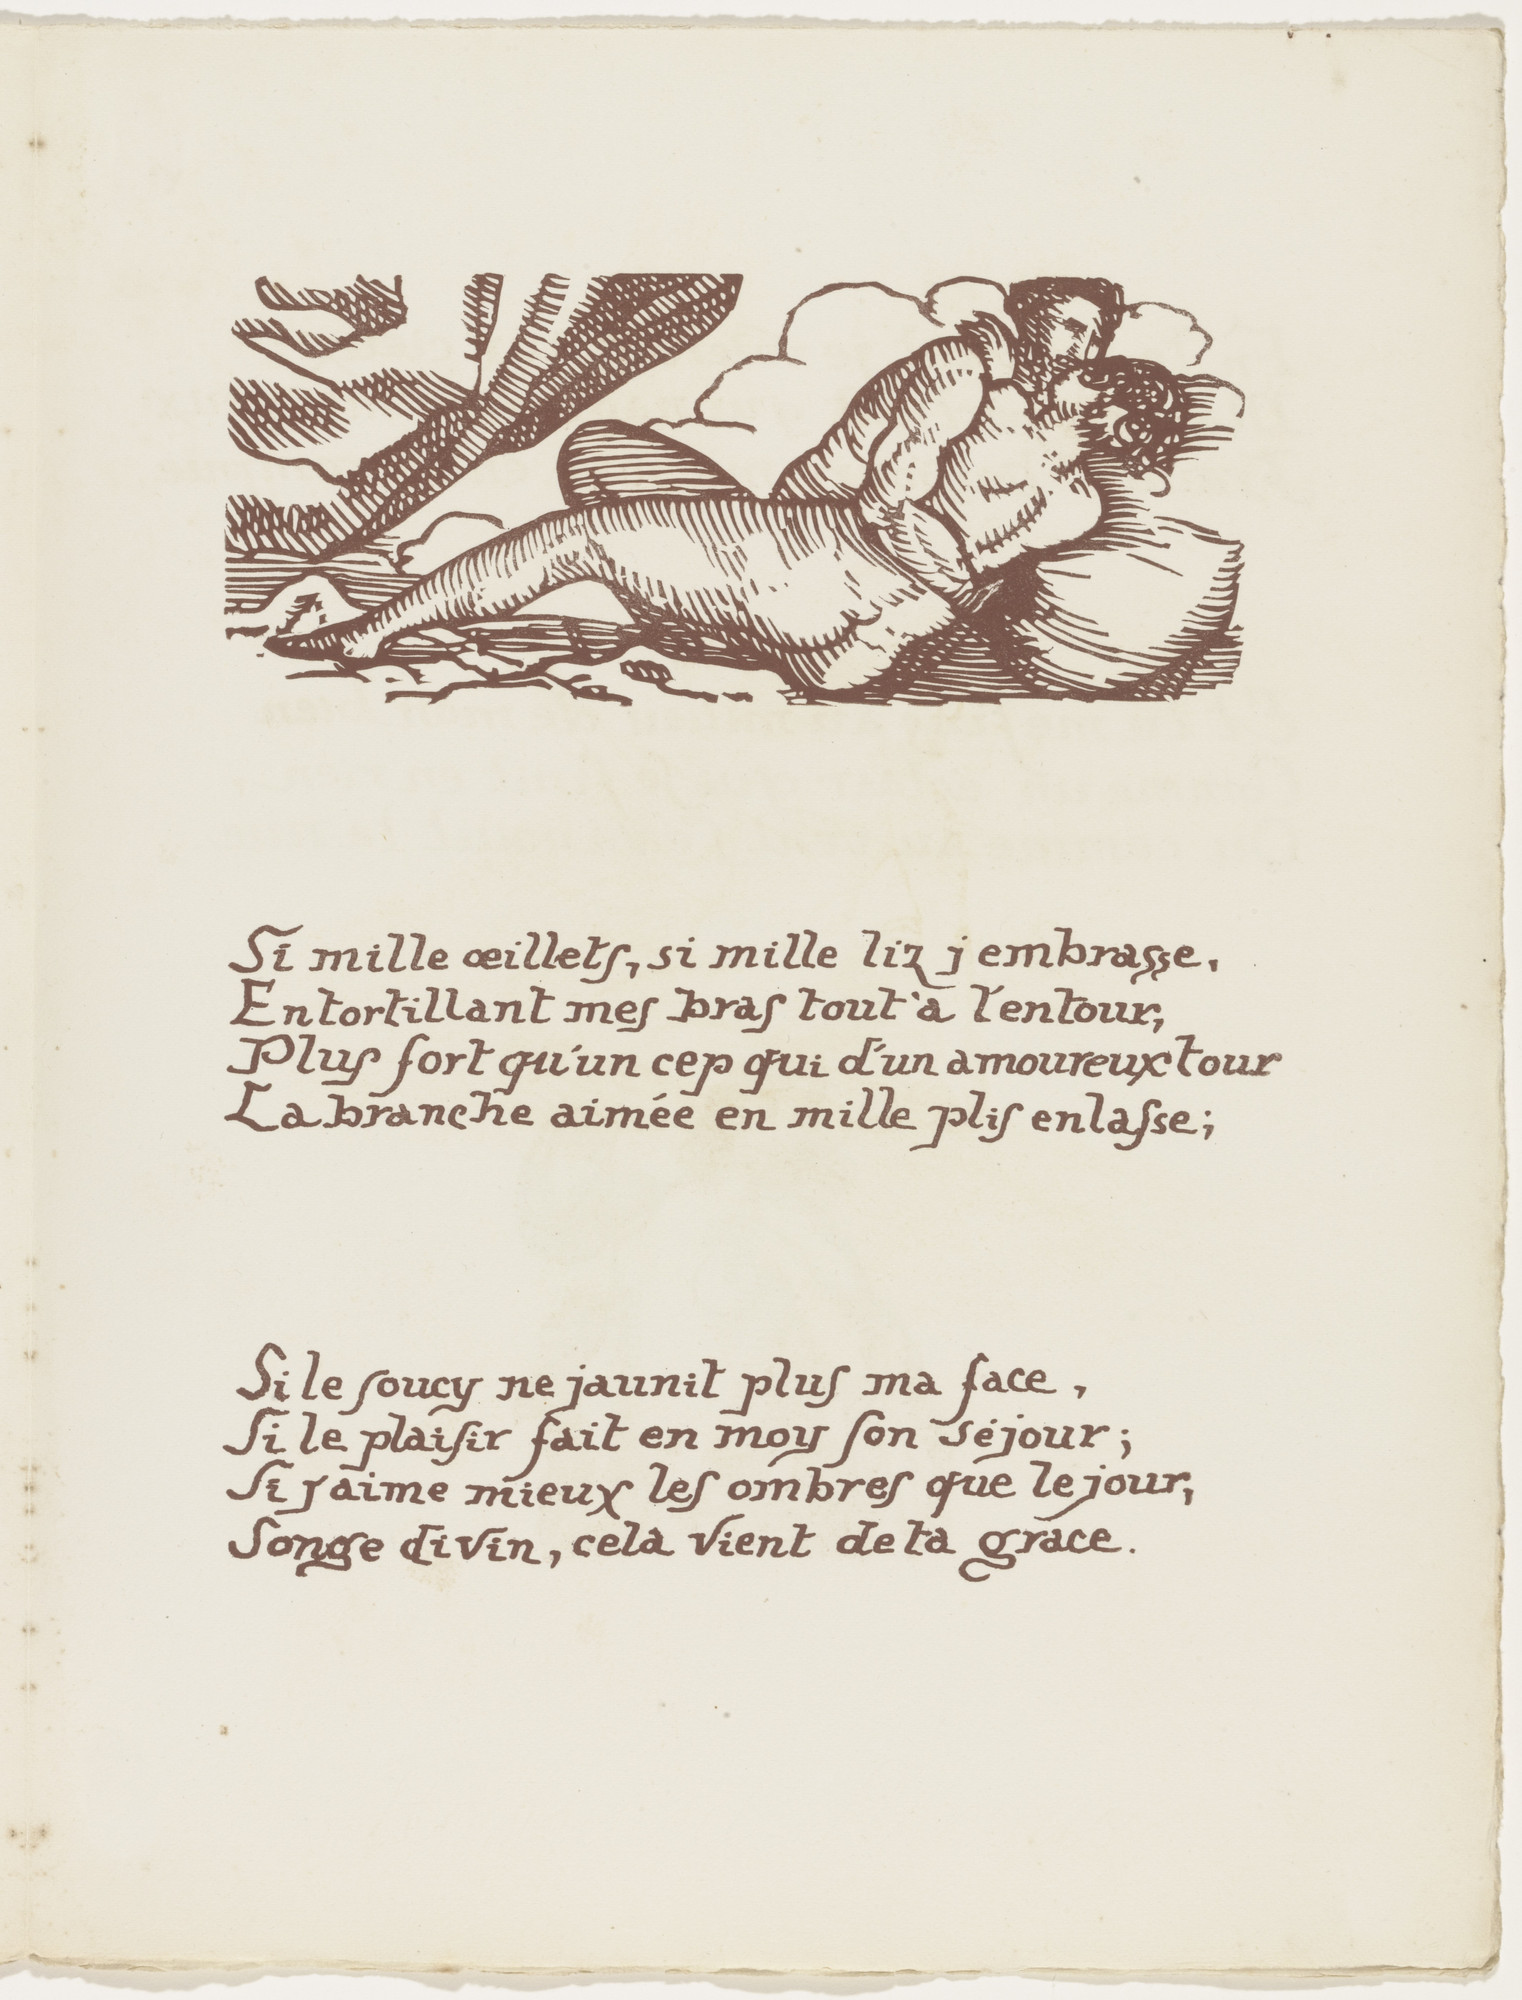 Si mille œillets, si mille liz j embrasse,
Entortillant mes bras tout à l'entour,
Plus fort qu'un cep qui d'un amoureux tour
La branche aimée en mille plis enlasse;
Si le soucy ne jaunit plus ma face,
Si le plaisir fait en moy son séjour;
Si j'aime mieux les ombres que le jour,
Songe divin, celà vient de ta grace.